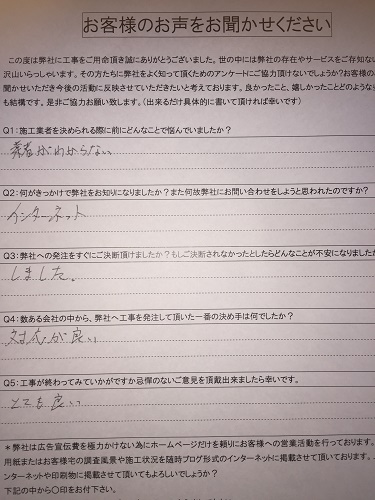 お客様のお声をお聞かせください
この度は弊社に工事をご用命頂き誠にありがとうございました。世の中には弊社の存在やサービスをご存知な
沢山いらっしゃいます。その方たちに弊社をよく知って頂くためのアンケートにご協力頂けないでしょうか?お客様の
聞かせいただき今後の活動に反映させていただきたいと考えております。良かったこと、嬉しかったことどのような
も結構です。是非ご協力お願い致します。(出来るだけ具体的に書いて頂ければ幸いです)
Q1:施工業者を決められる際に前にどんなことで悩んでいましたか?
業者がわからない
Q2:何がきっかけで弊社をお知りになりましたか?また何故弊社にお問い合わせをしようと思われたのですか?
インターネット
Q3:弊社への発注をすぐにご決断頂けましたか?もしご決断されなかったとしたらどんなことが不安になりましたか
しました。
Q4:数ある会社の中から、弊社へ工事を発注して頂いた一番の決め手は何でしたか?
対応が良い
Q5:工事が終わってみていかがですか忌憚のないご意見を頂戴出来ましたら幸いです。
とても良い
*弊社は広告宣伝費を極力かけない為にホームページだけを頼りにお客様への営業活動を行っております。
用紙またはお客様宅の調査風景や施工状況を随時ブログ形式のインターネットに掲載させて頂いております。
ンターネットや印刷物に掲載させて頂いてもよろしいでしょうか?
下記の中から〇印をお付下さい。